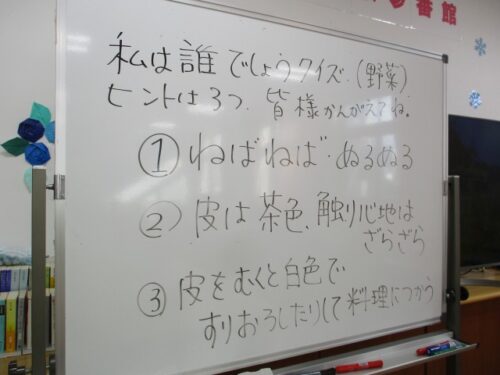 参番館
私は誰でしょうクイズ.(野菜)
ヒントは3つ.皆様かんがえてね。
①ねばねば・ぬるぬる
②皮は茶色、触り心地は
ざらざら
③皮をむくと白色で
すりおろしたりして料理につかう